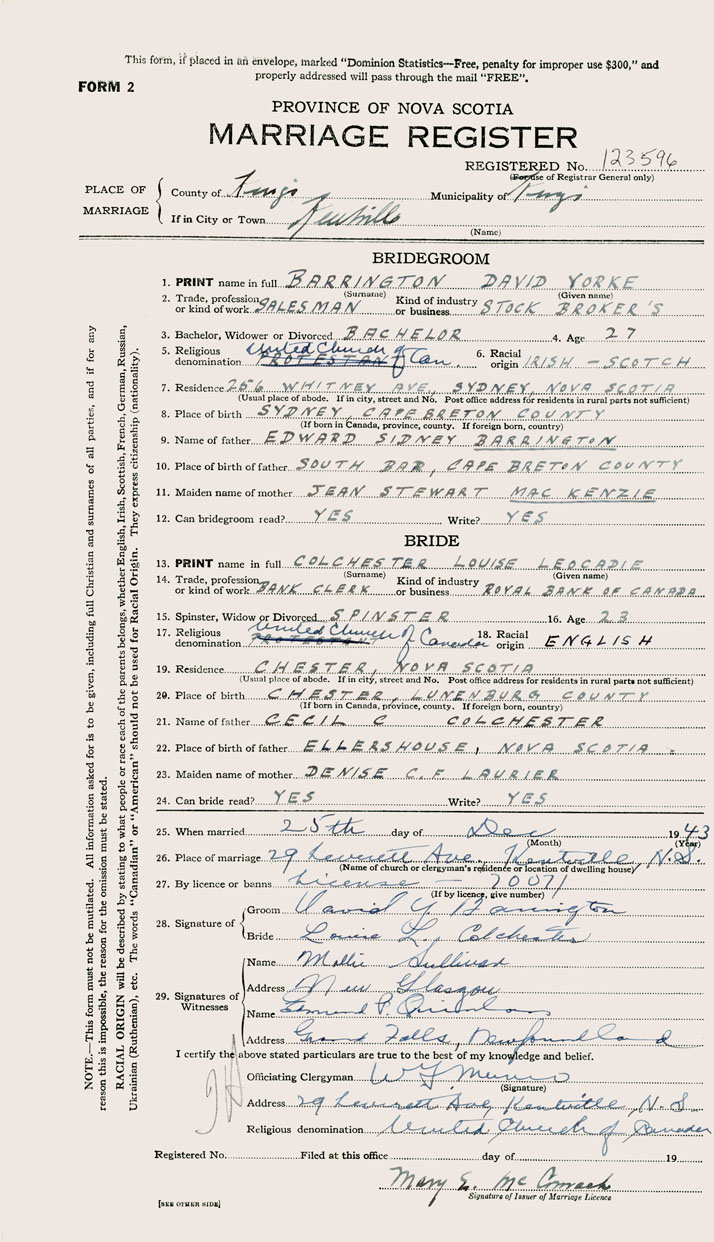 This form, if placed in an envelope, marked "Dominion Statistics—Free, penalty for improper use $300," and
properly addressed will pass through the mail "FREE".
FORM 2
PROVINCE OF NOVA SCOTIA
MARRIAGE REGISTER
REGISTERED No. 123596
(For use of Registrar General only)
PLACE OF MARRIAGE
County of Kings Municipality of Kings
If in City or Town Kentville
(Name)
BRIDEGROOM
1. PRINT name in full BARRINGTON DAVID YORKE
(Surname) (Given name)
2. Trade, profession or kind of work SALESMAN Kind of industry or business STOCK BROKER'S
3. Bachelor, Widower or Divorced BACHELOR 4. Age 27
5. Religious denomination United Church of Can. PROTESTANT 6. Racial origin IRISH - SCOTCH
7. Residence 256 WHITNEY AVE, SYDNEY, NOVA SCOTIA
(Usual place of abode. If in city, street and No. Post office address for residents in rural parts not sufficient)
8. Place of birth SYDNEY, CAPE BRETON COUNTY
(If born in Canada, province, county. If foreign born, country)
9. Name of father EDWARD SIDNEY BARRINGTON
10. Place of birth of father SOUTH BAR, CAPE BRETON COUNTY
11. Maiden name of mother JEAN STEWART MAC KENZIE
12. Can bridegroom read? YES Write? YES
BRIDE
13. PRINT name in full COLCHESTER LOUISE LEOCADIE
(Surname) (Given name)
14. Trade, profession or kind of work BANK CLERK Kind of industry or business ROYAL BANK OF CANADA
15. Spinster, Widow or Divorced SPINSTER 16. Age 23
17. Religious denomination United Church of Canada PROTESTANT 18. Racial origin ENGLISH
19. Residence CHESTER, NOVA SCOTIA
(Usual place of abode. If in city, street and No. Post office address for residents in rural parts not sufficient)
20. Place of birth CHESTER, LUNENBURG COUNTY
(If born in Canada, province, county. If foreign born, country)
21. Name of father CECIL C COLCHESTER
22. Place of birth of father ELLERSHOUSE, NOVA SCOTIA.
23. Maiden name of mother DENISE C. F. LAURIER
24. Can bride read? YES Write? YES
25. When married 25th day of Dec 1943
(Month) (Year)
26. Place of marriage 29 Leverett Ave., Kentville, N.S.
(Name of church or clergyman's residence or location of dwelling house)
27. By licence or banns License - 70071
(If by licence, give number)
28. Signature of
Groom David Y Barrington
Bride Louise L. Colchester
29. Signatures of Witnesses
Name Mollie Sullivan
Address New Glasgow
Name Edmund P. Quinlan
Address Grand Falls, Newfoundland
I certify the above stated particulars are true to the best of my knowledge and belief.
Officiating Clergyman W Munro
(Signature)
Address 29 Leverett Ave, Kentville, N.S.
Religious denomination United Church of Canada
Registered No. Filed at this office day of 19
Mary E. McCormack
Signature of Issuer of Marriage Licence
[SEE OTHER SIDE]
NOTE.—This form must not be mutilated. All information asked for is to be given, including full Christian and surnames of all parties, and if for any
reason this is impossible, the reason for the omission must be stated.
RACIAL ORIGIN will be described by stating to what people or race each of the parents belongs, whether English, Irish, Scottish, French, German, Russian,
Ukrainian (Ruthenian), etc. The words "Canadian" or "American" should not be used for Racial Origin. They express citizenship (nationality).